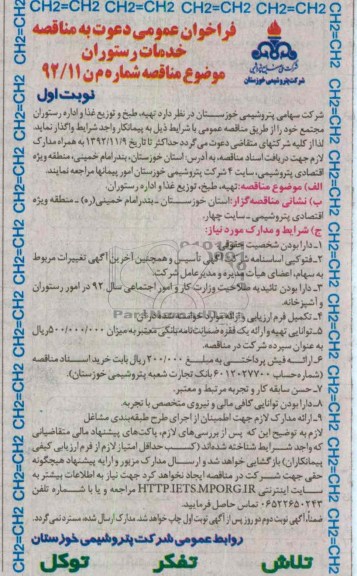 فراخوان عمومی دعوت به مناقصه
خدمات رستوران
موضوع مناقصه شماره م ن ۹۲/۱۱
شرکت پتروشیمی خوزستان
نوبت اول
شرکت سهامی پتروشیمی خوزستان در نظر دارد تهیه، طبخ و توزیع غذا و اداره رستوران
مجتمع خود را از طریق مناقصه عمومی با شرایط ذیل به پیمانکار واجد شرایط واگذار نماید.
لذا از کلیه شرکتهای متقاضی دعوت می گردد حداکثر تا تاریخ ۱۳۹۲/۱۱/۹ به همراه مدارک
لازم جهت دریافت اسناد مناقصه، به آدرس: استان خوزستان، بندرامام خمینی، منطقه ویژه
اقتصادی پتروشیمی، سایت ۴ شرکت پتروشیمی خوزستان امور پیمانها مراجعه نمایند.
الف) موضوع مناقصه: تهیه، طبخ، توزیع غذا و اداره رستوران.
ب) نشانی مناقصه گزار: استان خوزستان ـ بندرامام خمینی (ره) ـ منطقه ویژه
اقتصادی پتروشیمی ـ سایت چهار.
ج) شرایط و مدارک مورد نیاز:
۱ـ دارا بودن شخصیت حقوقی
۲ـ فتوکپی اساسنامه درج آگهی تأسیس و همچنین آخرین آگهی تغییرات مربوط
به سهام، اعضای هیأت مدیره و مدیرعامل شرکت.
۳ـ دارا بودن تائیدیه صلاحیت وزارت کار و امور اجتماعی سال ۹۲ در امور رستوران
و آشپزخانه.
۴ـ تکمیل فرم ارزیابی و ارائه موارد خواسته شده
۵ـ توانایی تهیه و ارائه یک فقره ضمانت نامه بانکی معتبر به میزان ۵۰۰/۰۰۰/۰۰۰ ریال
به عنوان سپرده شرکت در مناقصه.
۶ـ ارائه فیش پرداختی به مبلغ ۲۰۰/۰۰۰ ریال بابت خرید اسناد مناقصه
(شماره حساب ۶۰۱۳۰۲۷۷۰۰ بانک تجارت شعبه پتروشیمی خوزستان).
۷ـ حسن سابقه کار و تجربه مرتبط و معتبر.
۸ـ دارا بودن توانایی کافی مالی و نیروی متخصص با تجربه
۹ـ ارائه مدارک لازم جهت اطمینان از اجرای طرح طبقه بندی مشاغل
لازم به توضیح این که پس از بررسی های لازم، پاکت های پیشنهاد مالی متقاضیانی
که واجد شرایط شناخته شده اند (کسب حداقل امتیاز لازم از فرم ارزیابی کیفی
پیمانکاران) بازگشایی خواهد شد و ارسال مدارک مزبور و ارایه پیشنهاد هیچگونه
حقی جهت شرکت در مناقصه ایجاد نخواهد کرد جهت نیاز به اطلاعات بیشتر به
سایت اینترنتی HTTP.IETS.MPORG.IR مراجعه و یا با شماره تلفن
۰۶۵۲۲۶۵۰۲۴۳ تماس حاصل فرمایید.
ضمناً، آگهی نوبت دوم دو روز پس از آگهی نوبت اول چاپ خواهد شد. مدارک ارسال شده، مسترد نمی گردد.
روابط عمومی شرکت پتروشیمی خوزستان
تلاش تفکر توکل